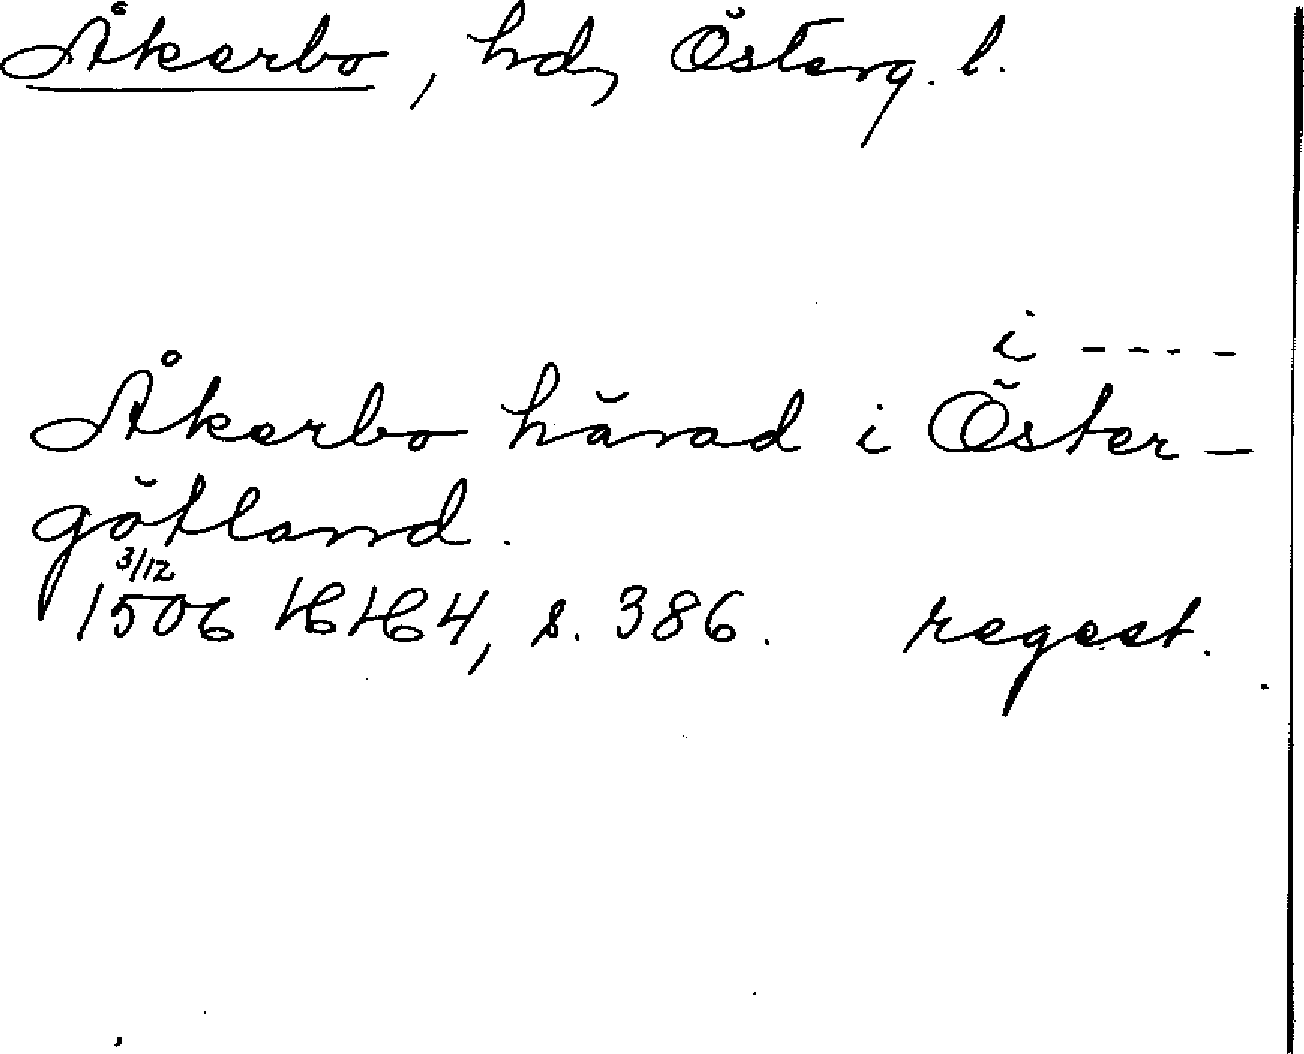 Åkerbo, hd, Österg. l.
i ----
Åkerbo härad i Öster-
götland.
3/12
1506 HH4, s. 386. regest.